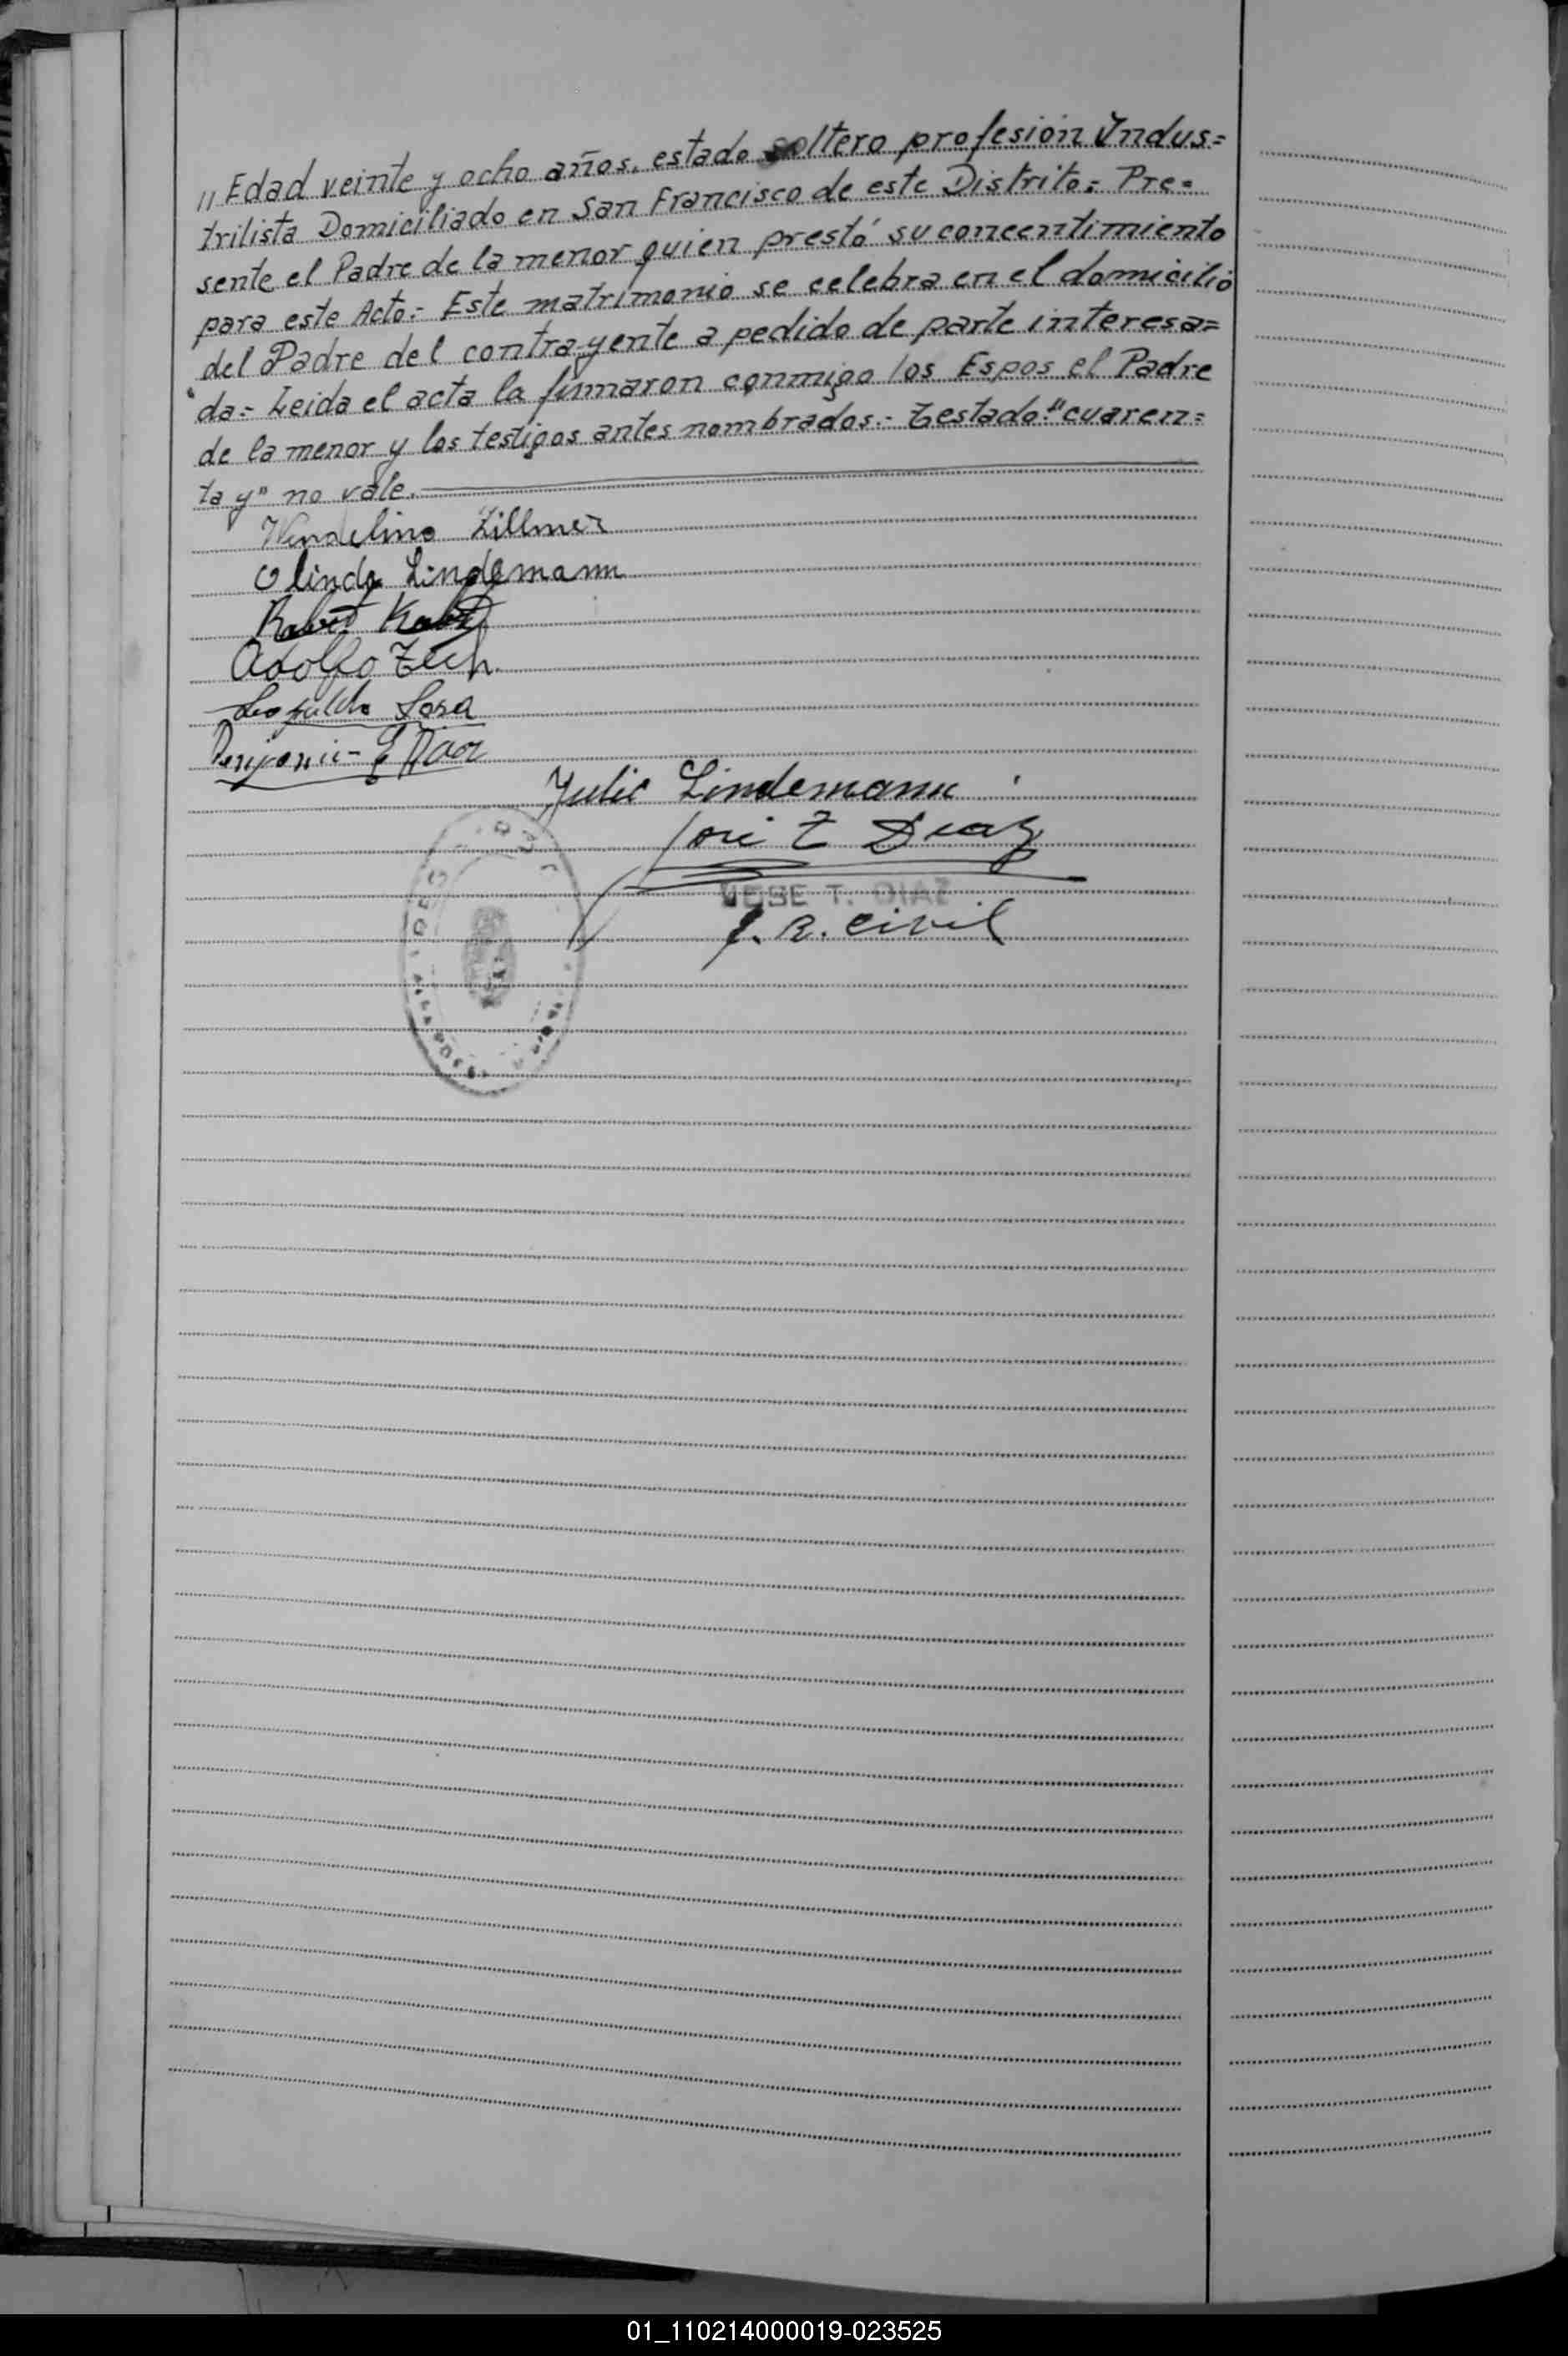 " Edad veinte y ocho años, estado soltero profesión Indus=
trilista Domiciliado en San Francisco de este Distrito= Pre=
sente el Padre de la menor quien prestó su concentimiento
para este Acto.- Este matrimonio se celebra en el domicilio
del Padre del contra-yente a pedido de parte interesa=
da= Leida el acta la firmaron conmigo los Espos el Padre
de la menor y los testigos antes nombrados.- Testado: "cuaren=
ta y" no vale.
Wendelino Zillmer
Olinda Lindemann
Adolfo Zech
Leopoldo Sosa
Julio Lindemann
José T Diaz
JOSE T. DIAZ
J. R. Civil
01_110214000019-023525